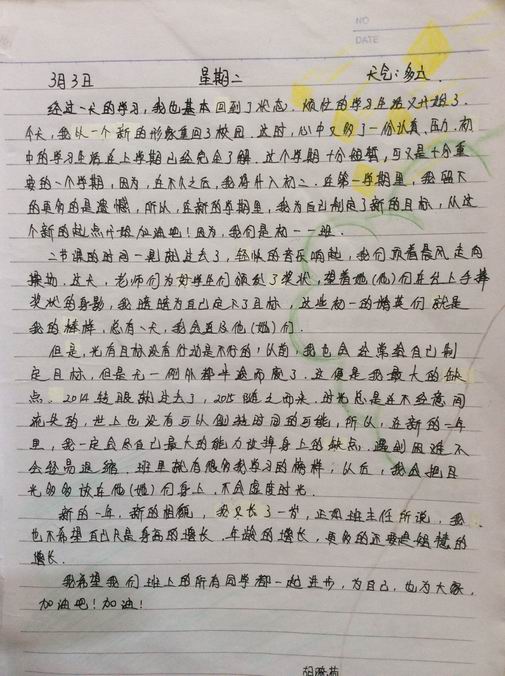 NO
DATE
3月3日 星期二 天气:多云.
经过一天的学习,我也基本回到了状态. 烦忙的学习生活又开始了.
今天,我以一个新的形象重回了校园. 这时,心中又多了一份认真、压力. 初
中的学习生活在上学期已经完全了解. 这个学期十分短暂,可又是十分重
要的一个学期,因为,在不久之后,我将升入初二. 在第一学期里,我留下
的更多的是遗憾,所以,在新的学期里,我为自己制定了新的目标,从这
个新的起点开始加油吧!因为,我们是初一一班.
二节课的时间一晃就过去了,轻快的音乐响起,我们顶着晨风走向
操场. 这天,老师们为好学生们颁发了奖状,望着她(他)们在台上手捧
奖状的身影,我暗暗为自己定下了目标,这些初一的精英们就是
我的榜样,总有一天,我会追及他(她)们.
但是,光有目标没有行动是不行的;以前,我也会经常给自己制
定目标,但是无一例外都半途而废了. 这便是我最大的缺
点. 2014转眼就过去了,2015随之而来. 时光总是在不经意间
流失的,世上也没有可以倒转时间的可能,所以,在新的一年
里,我一定会尽自己最大的能力改掉身上的缺点,遇到困难不
会轻易退缩. 班里就有很多我学习的榜样;从后,我会把目
光多多放在他(她)们身上,不会虚度时光.
新的一年,新的祖额,我又长了一岁,正如班主任所说,我
也不希望自己只是身高的增长、年龄的增长,更多的还要是智慧的
增长.
我希望我们班上的所有同学都一起进步,为自己,也为大家,
加油吧!加油!